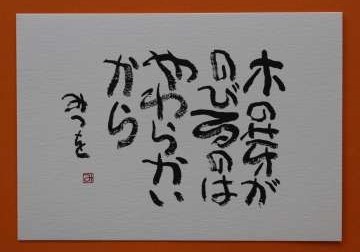 木の芽が
のびるのは
やわらかい
から
みつを